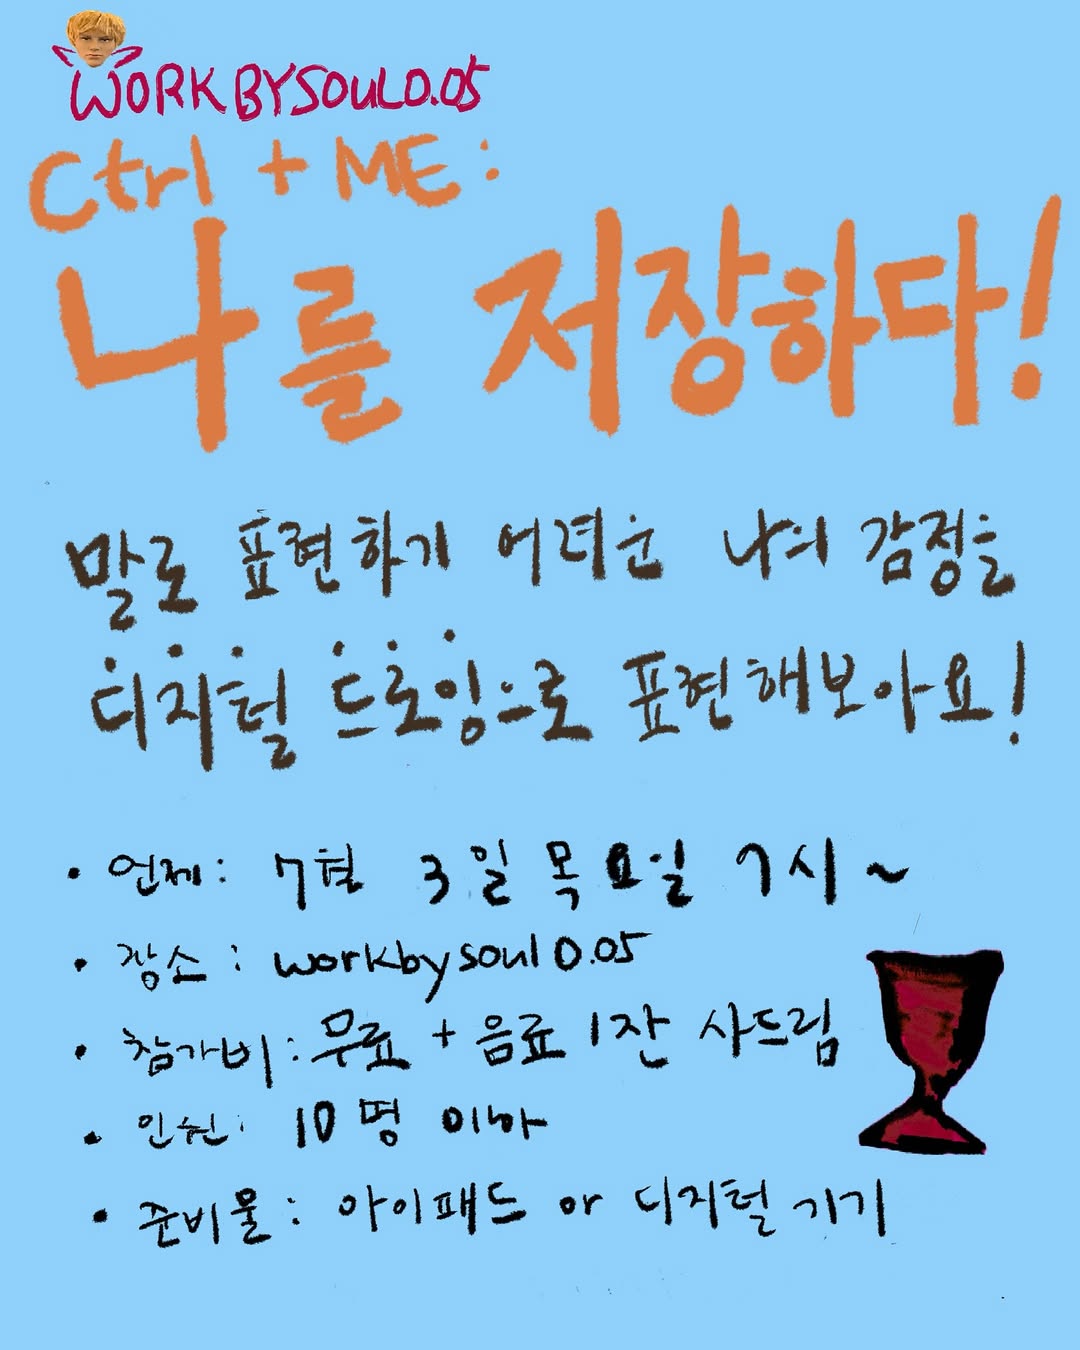 WORKBYSOUL0.05
Ctrl + ME:
나를 저장하다!
말로 표현하기 어려운 나의 감정을
디지털 드로잉으로 표현해보아요!
• 언제: 7월 3일 목요일 7시~
• 장소: workbysoul0.05
• 참가비: 무료 + 음료 1잔 사드림
• 인원: 10명 이하
• 준비물: 아이패드 or 디지털 기기